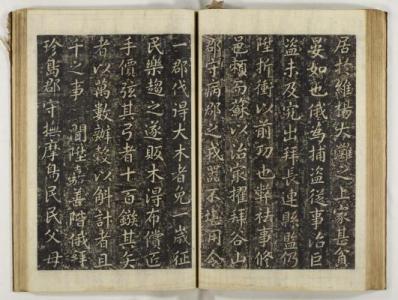 居於維揚大灘之上家甚貧
晏如也俄為捕盜從事治巨
盜未及宛出拜長連縣監仍
陞折衝以前功也弊祛事修
邑賴而蘇以治最擢拜谷山
郡守病郡之戎器不堪用令
一郡伐得大木者免一歲征
民樂趨之遂販木得布償匠
手價弦其弓者十百鏃其矢
者以萬數辦穀以斛計者且
千之事 聞陞嘉善階俄拜
珍島郡守撫摩島民民父母